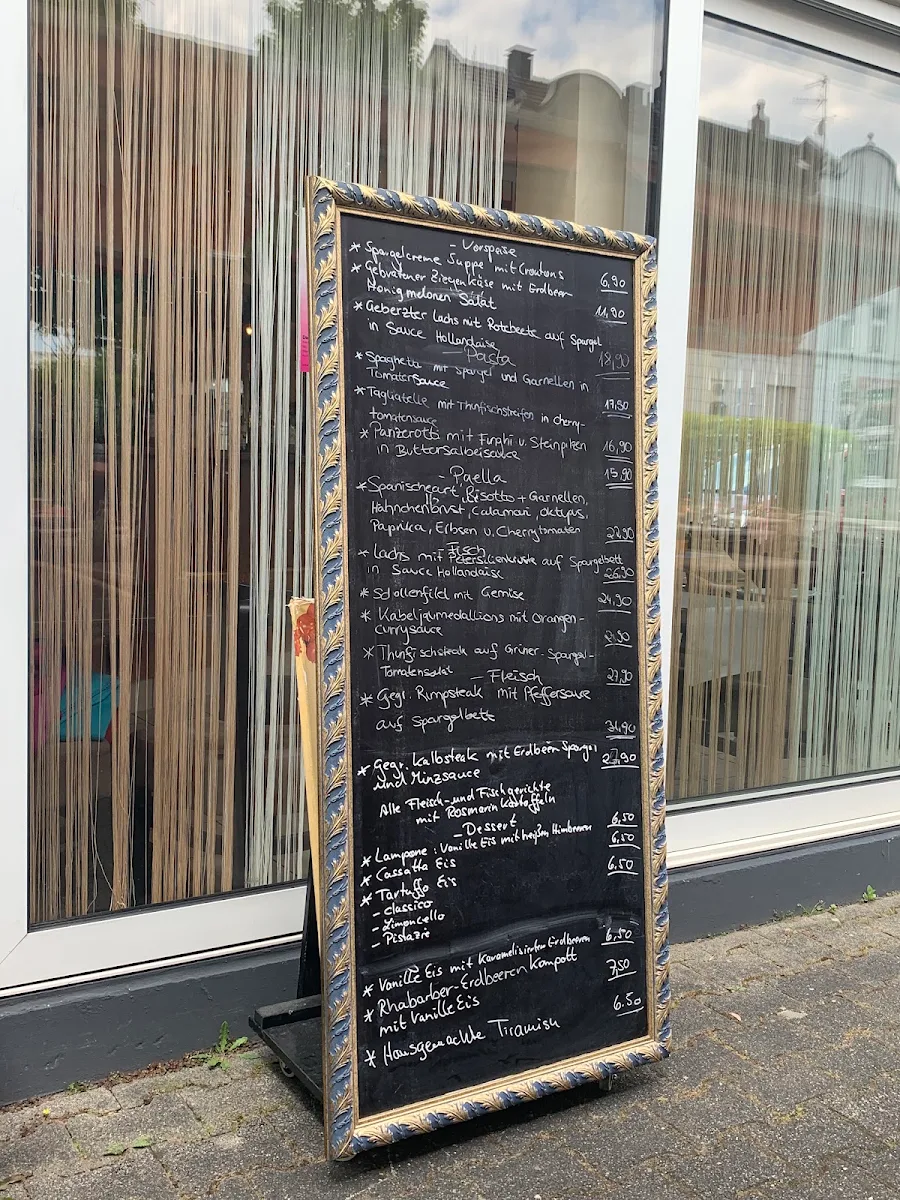 - Vorspeise
* Spargelcreme Suppe mit Croutons 6,90
* Gebratener Ziegenkäse mit Erdbeer
Honigmelonen Salat 11,90
* Geberzter Lachs mit Rotebeete auf Spargel
in Sauce Hollandaise 18,90
- Pasta
* Spaghetti mit Spargel und Garnellen in
Tomatersauce 17,90
* Tagliatelle mit Thunfischstreifen in cherry-
tomatensauce 16,90
* Panzerotti mit Funghi u. Steinpilzen
in Buttersalbeisauce 15,90
- Paella
* Spanischeart, Risotto + Garnellen,
Hähnchenbrust, Calamari, oktupus,
Paprika, Erbsen u. Cherrytomaten 22,90
- Fisch
* Lachs mit Petersilienkruste auf Spargelbett
in Sauce Hollandaise 26,90
* Schollenfilet mit Gemüse 24,90
* Kabeljaumedallions mit Orangen-
currysauce
* Thunfischsteak auf Grüner-Spargel-
Tomatensalat 27,90
- Fleisch
* Gegr. Rumpsteak mit Pfeffersauce
auf Spargelbett 34,90
* Gegr. Kalbsteak mit Erdbeer Spargel
und Minzsauce
Alle Fleisch-und Fischgerichte
mit Rosmarin kartoffeln
- Dessert
* Lampone: Vanille Eis mit heißen Himbeeren 6,50
* Cassatta Eis 6,50
* Tartuffo Eis 6,50
- classico
- Limoncello
- Pistazie
* Vanille Eis mit Karamelisierten Erdbeeren 6,50
* Rhabarber-Erdbeeren Kompott
mit Vanille Eis 7,50
* Hausgemachte Tiramisu 6.50